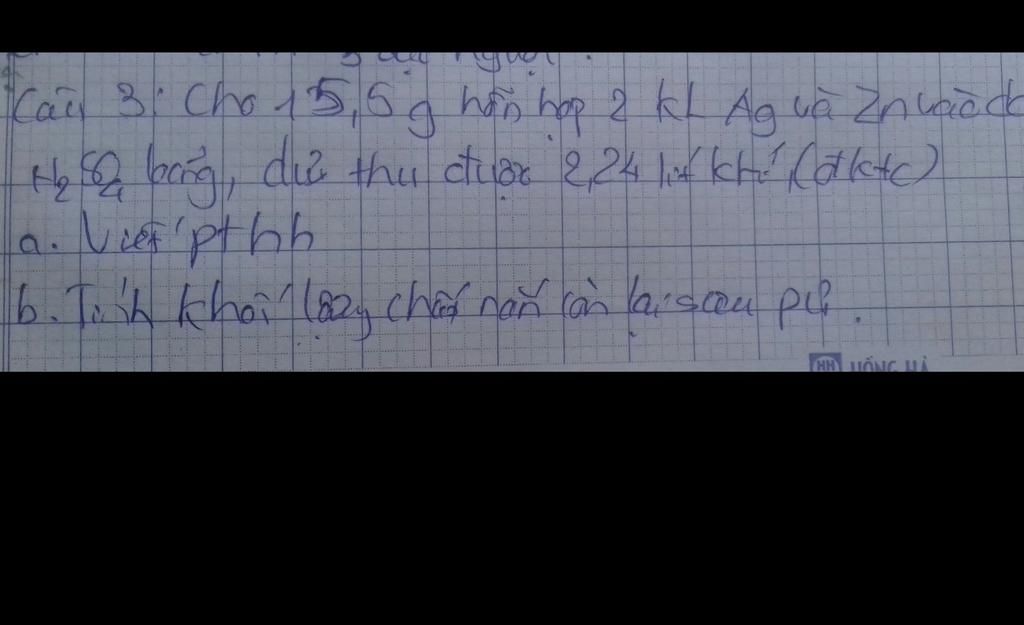 Câu 3: Cho 15,5g hỗn hợp 2 kL Ag và Zn vào dd
H2SO4 loãng, dư thu được 2,24 lít khí (đktc)
a. Viết pthh
b. Tính khối lượng chất rắn còn lại sau pứ.
HH HỒNG HÀ